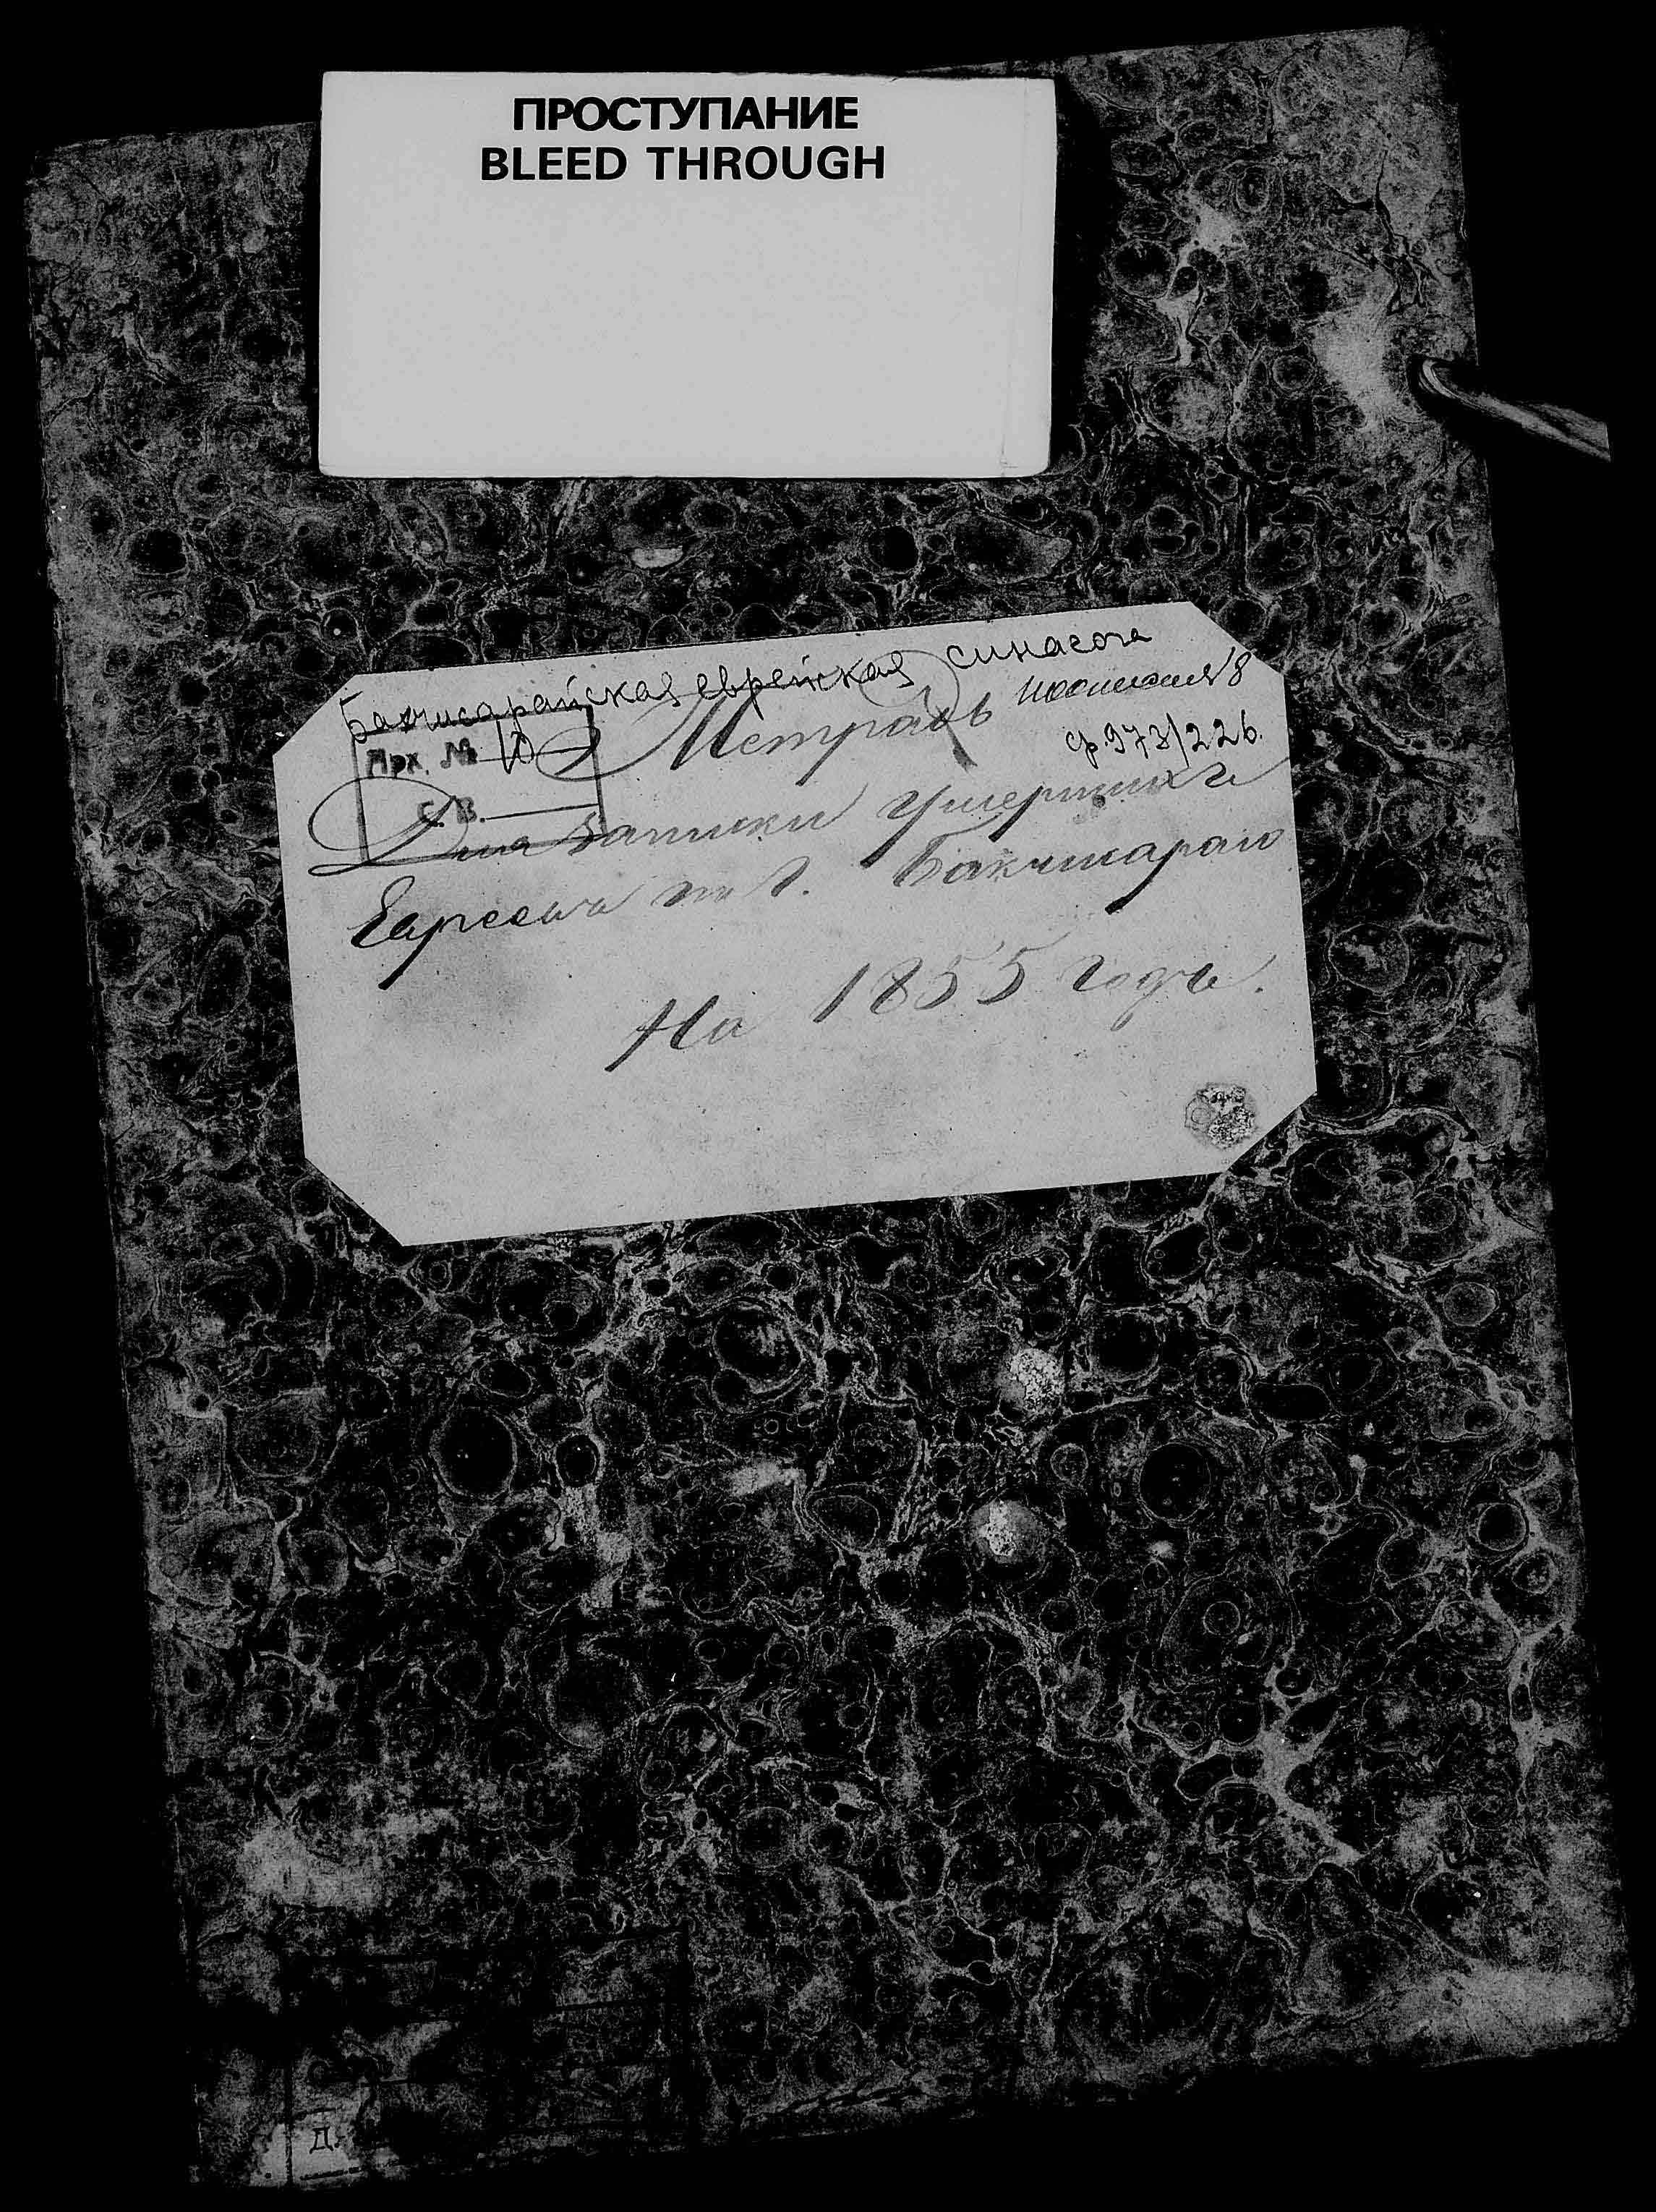 ПРОСТУПАНИЕ
BLEED THROUGH
Бахчисарайская еврейская синагога
Метрика
Арх. № 10
ф. 973/226.
С. В.
Для записки умершихъ
Евреевъ по г. Бахчисараю
На 1855 годъ.
Д.